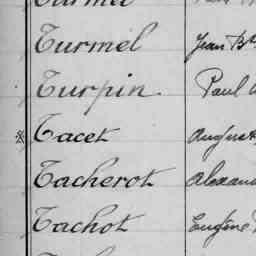 Turmel Jean Bte
Turpin Paul
※ Tacet August
Tacherot Alexan
Tachot Eugène